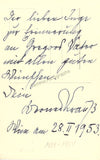 Der lieben Inge
zur Erinnerung
an Gregors Vater
mit allen guten
Wünschen.
Dein
Wien am 28.II.1953